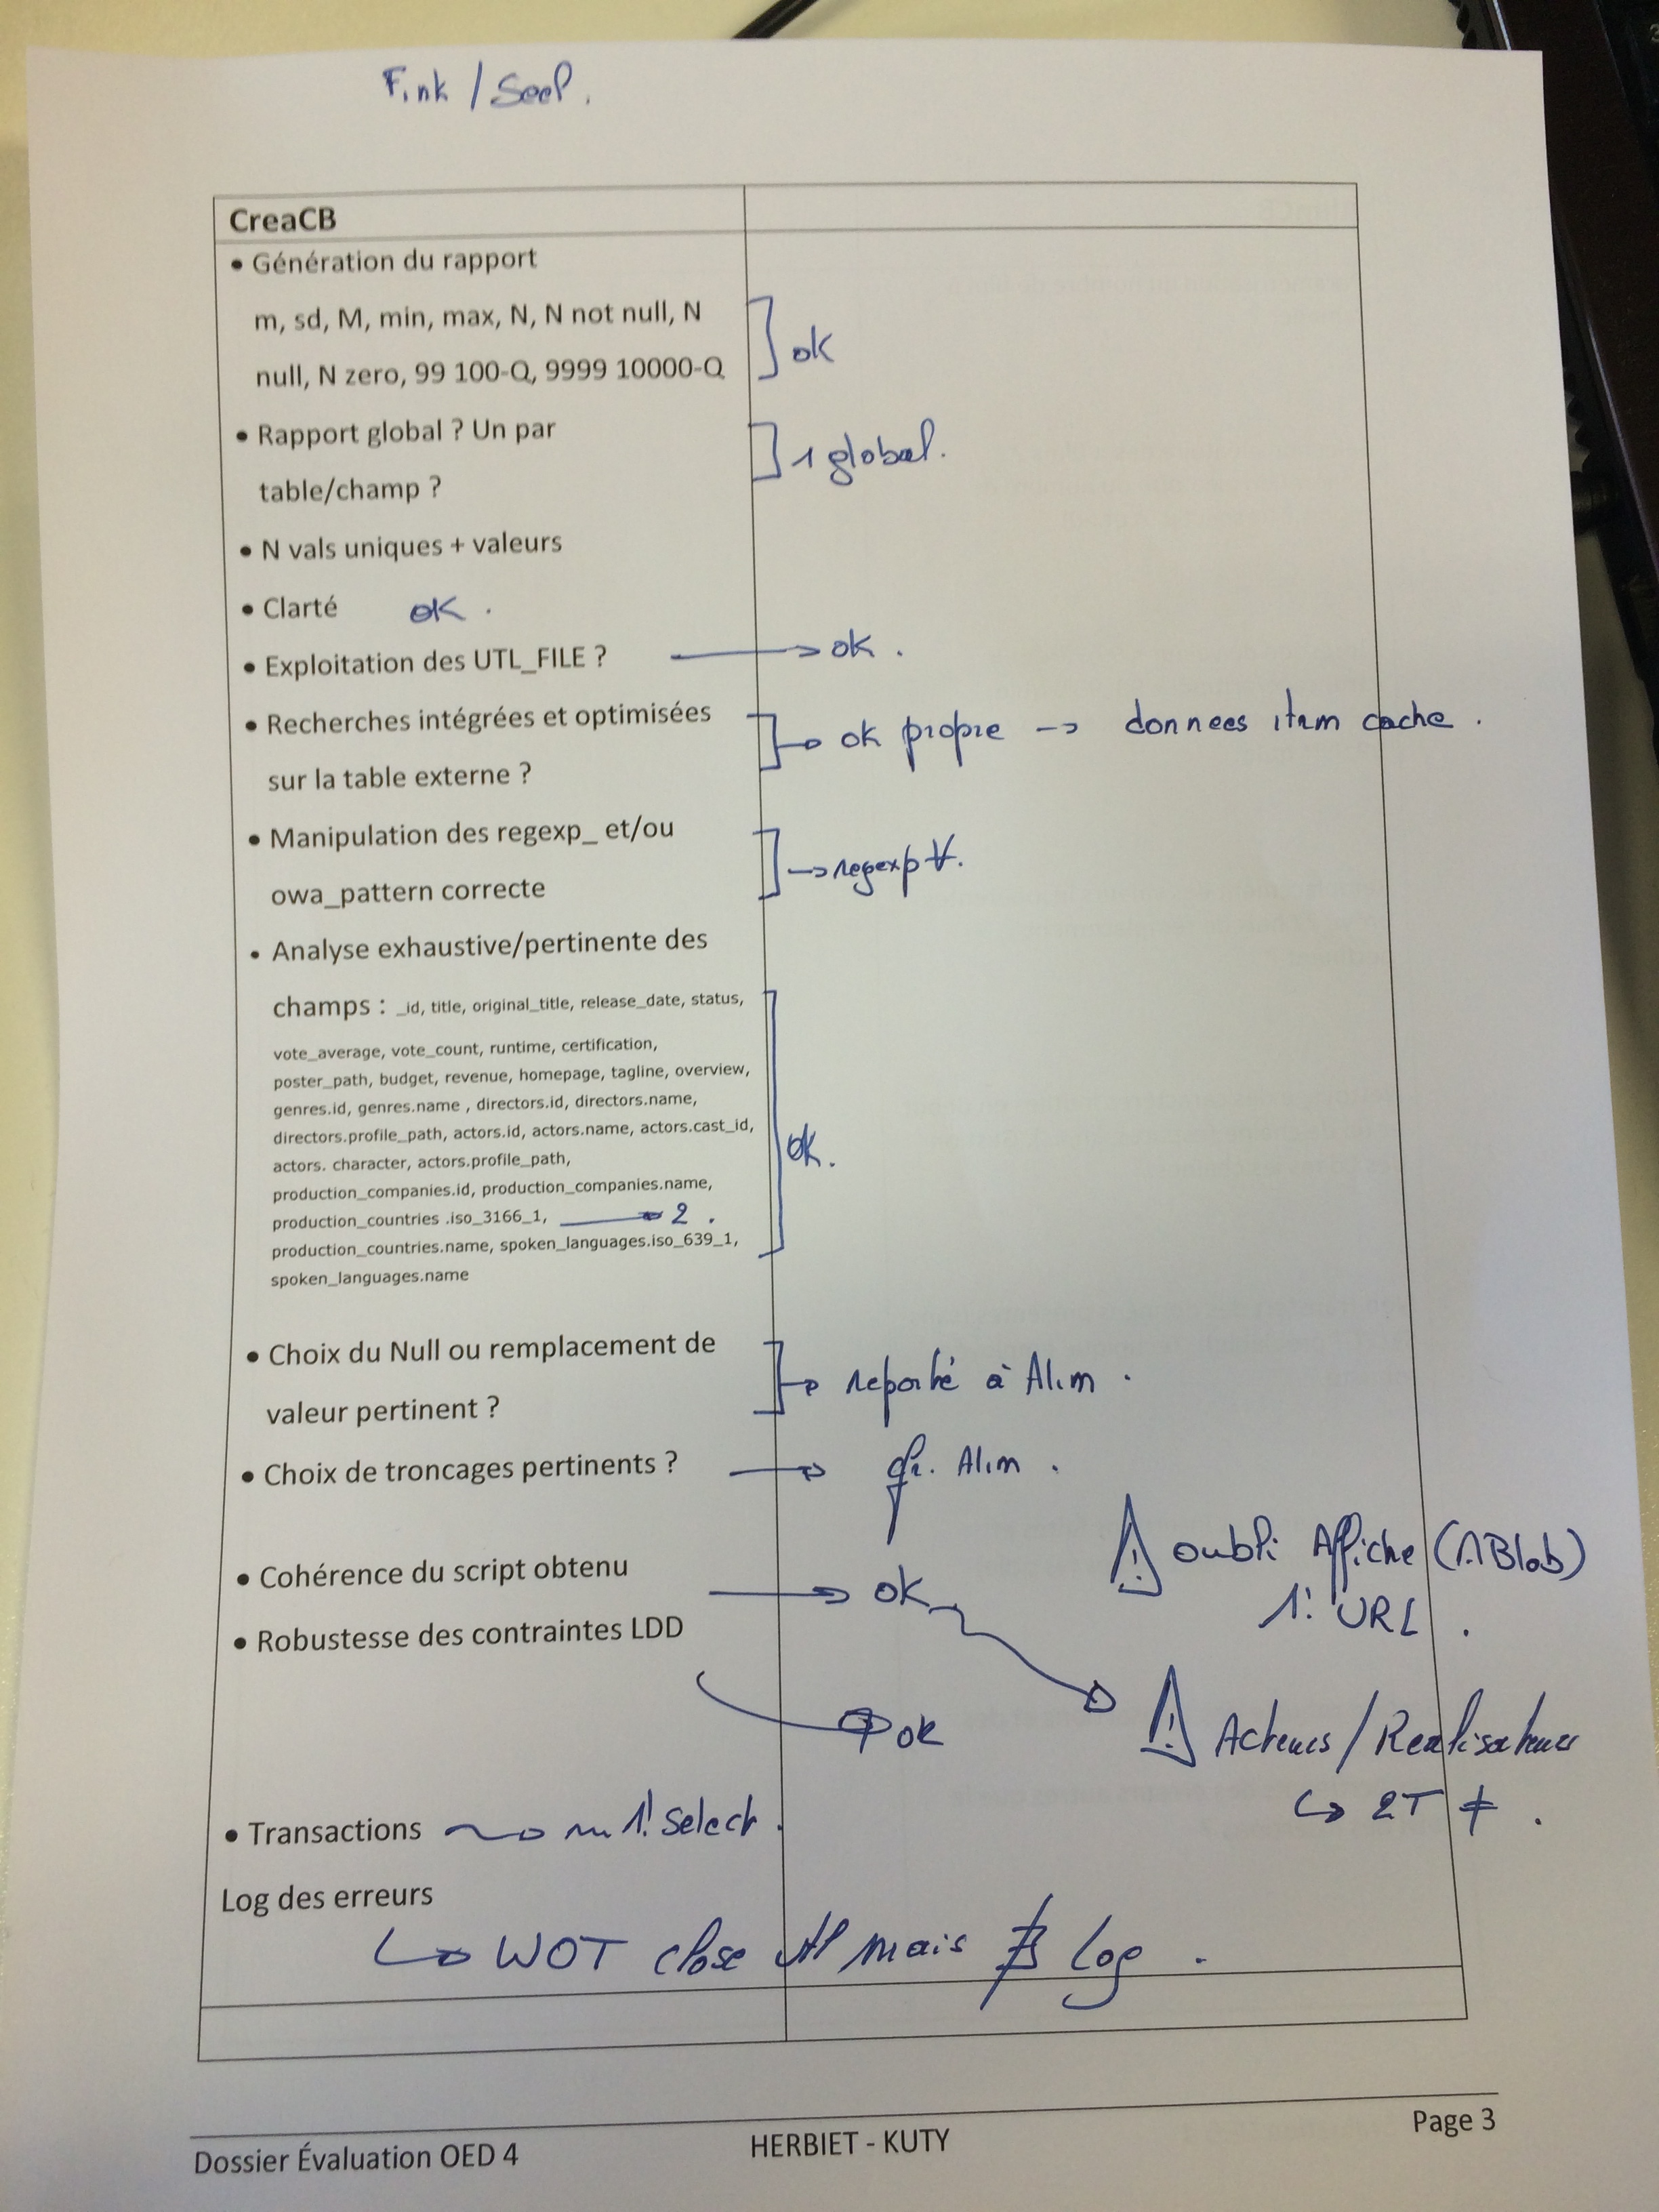 Fink / Seel.
CreaCB
• Génération du rapport
m, sd, M, min, max, N, N not null, N
null, N zero, 99 100-Q, 9999 10000-Q
ok
• Rapport global ? Un par
table/champ ?
1 global.
• N vals uniques + valeurs
• Clarté OK .
• Exploitation des UTL_FILE ? → ok .
• Recherches intégrées et optimisées
sur la table externe ?
→ ok propre → donnees item cache .
• Manipulation des regexp_ et/ou
owa_pattern correcte
→ regexp ∀.
• Analyse exhaustive/pertinente des
champs : _id, title, original_title, release_date, status,
vote_average, vote_count, runtime, certification,
poster_path, budget, revenue, homepage, tagline, overview,
genres.id, genres.name , directors.id, directors.name,
directors.profile_path, actors.id, actors.name, actors.cast_id,
actors. character, actors.profile_path,
production_companies.id, production_companies.name,
production_countries .iso_3166_1, → 2 .
production_countries.name, spoken_languages.iso_639_1,
spoken_languages.name
ok.
• Choix du Null ou remplacement de
valeur pertinent ?
→ reporté à Alim .
• Choix de troncages pertinents ? → Alim .
⚠ oubli Affiche (1Blob)
1! URL .
• Cohérence du script obtenu → ok
• Robustesse des contraintes LDD
→ ok
⚠ Acteurs / Realisateurs
↳ 2T ≠ .
• Transactions → 1! Select .
Log des erreurs
↳ WOT close mais ∄ Log .
Dossier Évaluation OED 4
HERBIET - KUTY
Page 3